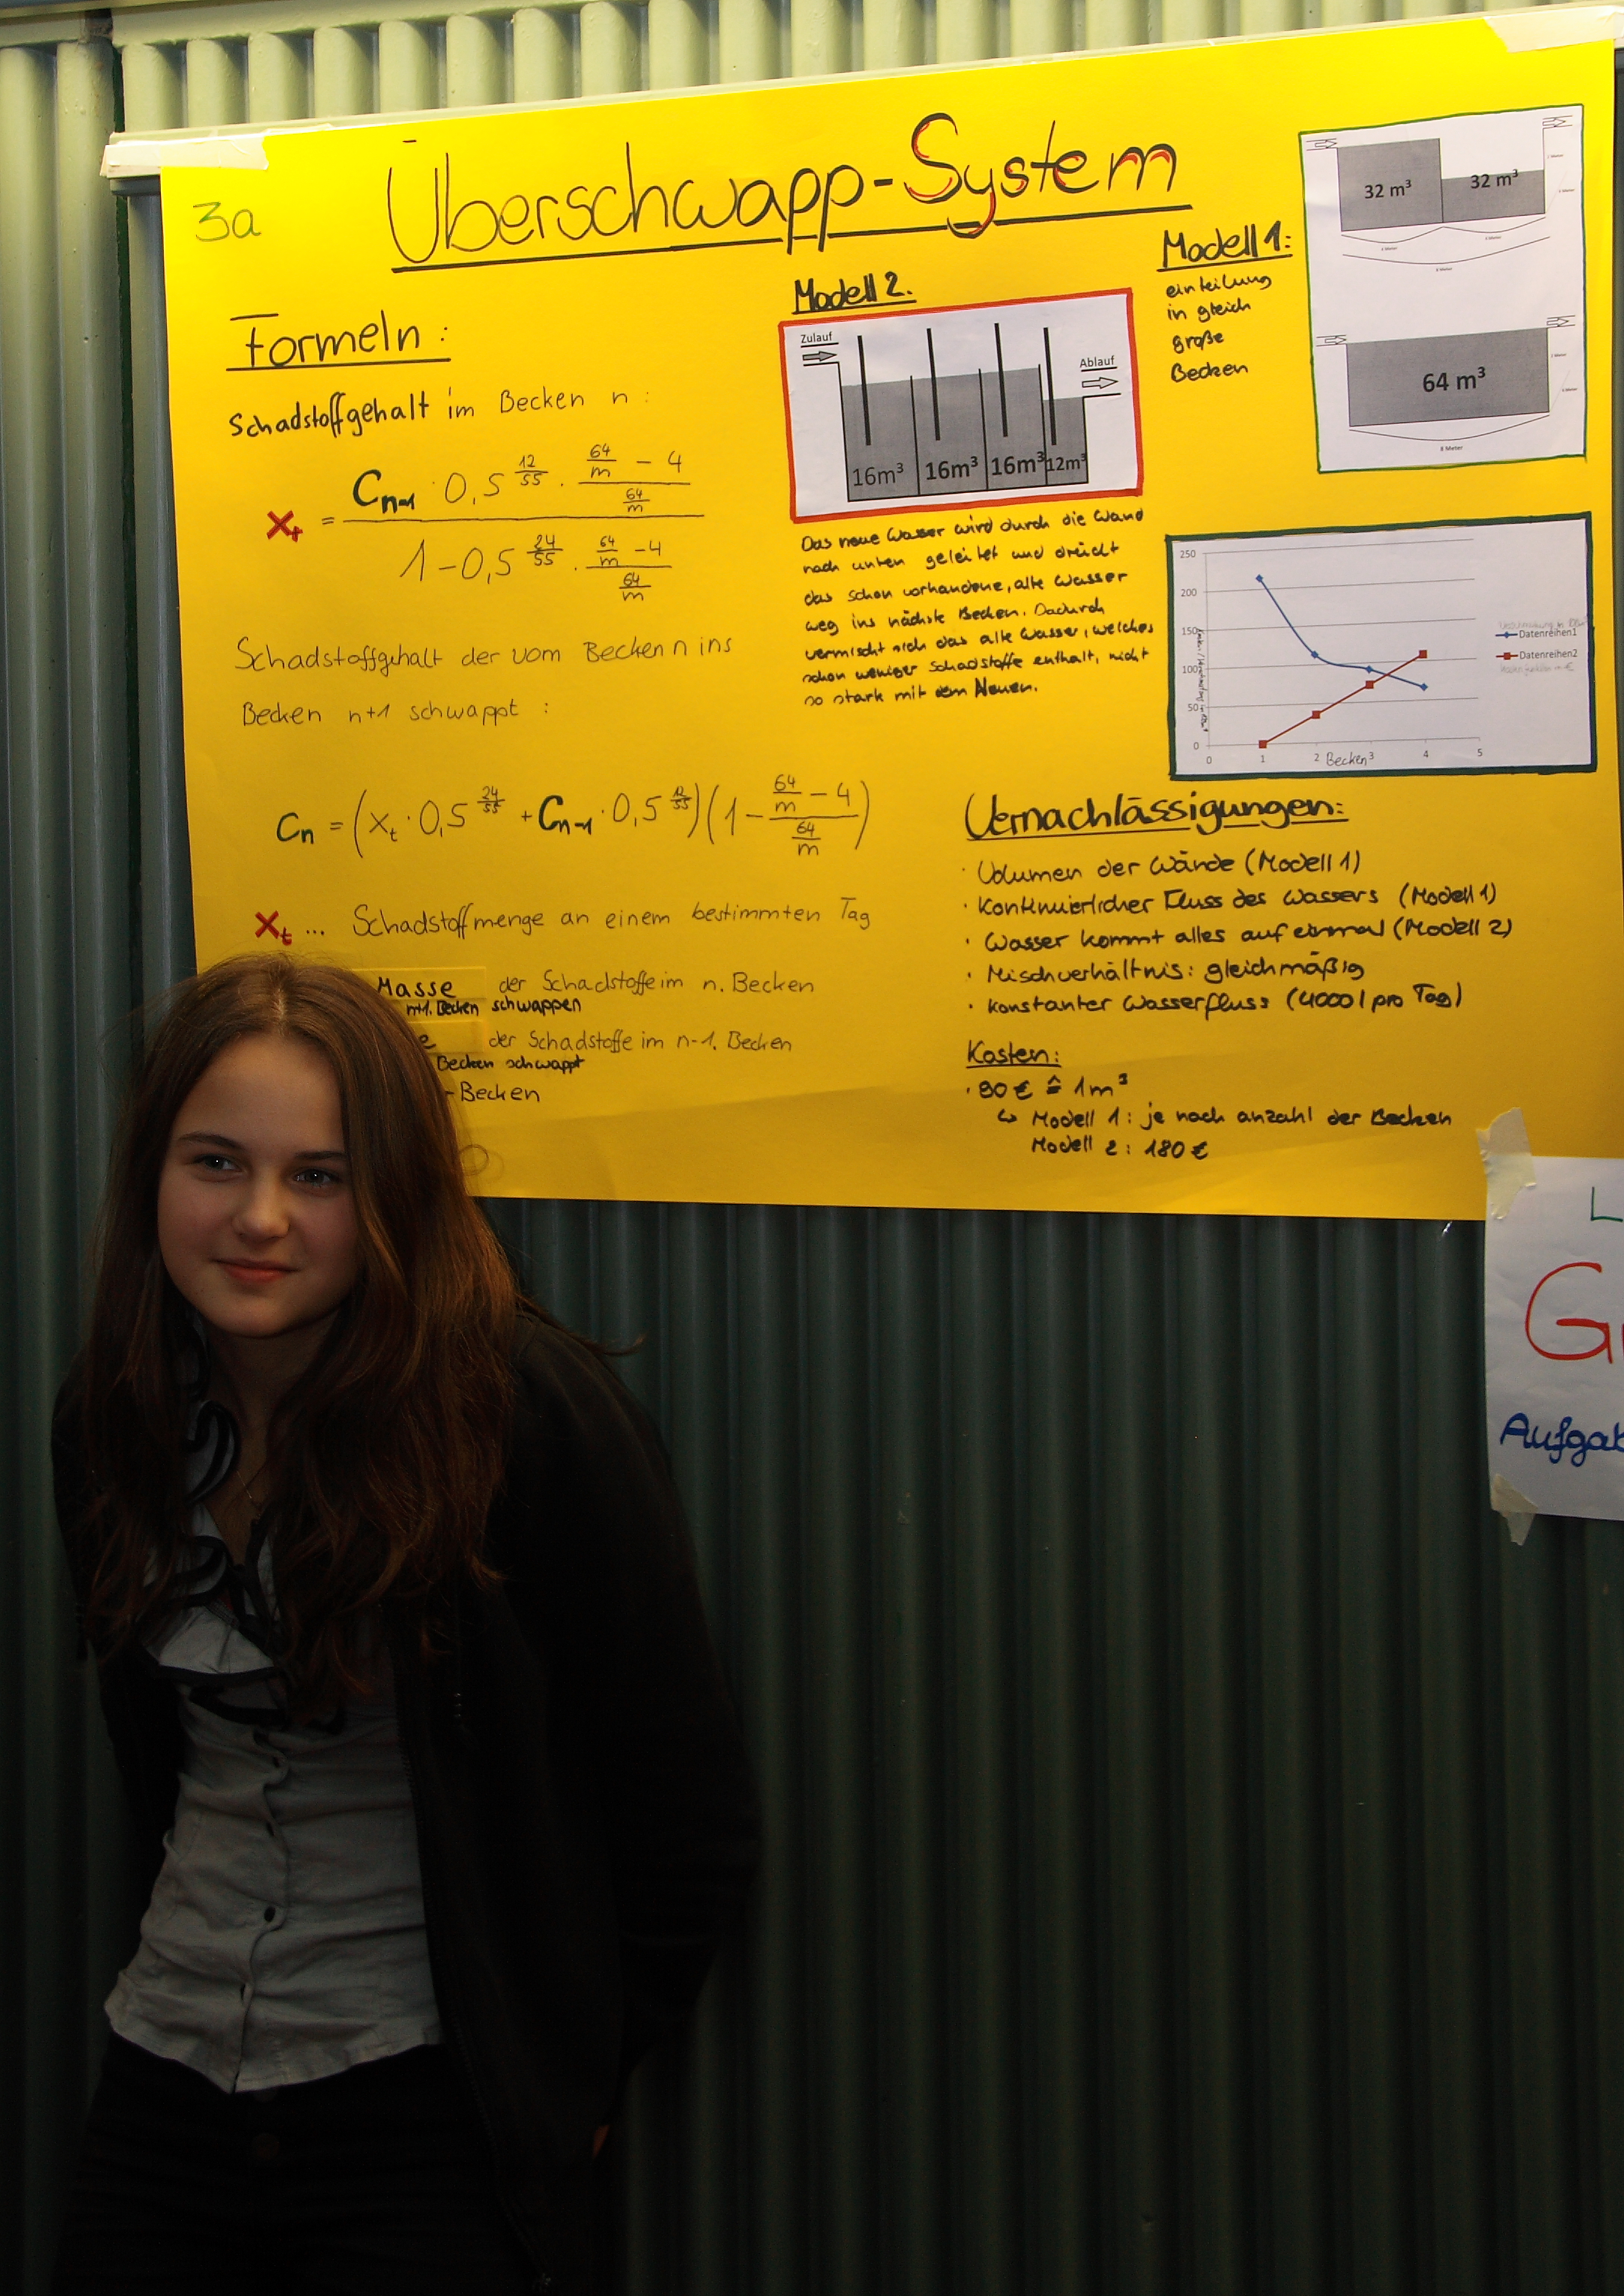 3a
Überschwapp-System
Formeln:
Schadstoffgehalt im Becken n:
x_t = (C_{n-1} · 0,5^{12/55} · (64/m - 4)/(64/m)) / (1 - 0,5^{24/55} · (64/m - 4)/(64/m))
Schadstoffgehalt der vom Becken n ins
Becken n+1 schwappt :
C_n = (x_t · 0,5^{24/55} + C_{n-1} · 0,5^{12/55}) (1 - (64/m - 4)/(64/m))
x_t ... Schadstoffmenge an einem bestimmten Tag
Masse der Schadstoffe im n. Becken
n+1. Becken schwappen
der Schadstoffe im n-1. Becken
Becken schwappt
-Becken
Modell 2.
Zulauf
Ablauf
16m³ 16m³ 16m³ 12m³
Das neue Wasser wird durch die Wand
nach unten geleitet und drückt
das schon vorhandene, alte Wasser
weg ins nächste Becken. Dadurch
vermischt sich das alte Wasser, welches
schon weniger Schadstoffe enthält, nicht
so stark mit dem Neuen.
Modell 1:
einteilung
in gleich
große
Becken
32 m³ 32 m³
64 m³
8 Meter
250
200
150
100
50
0
0 1 2 3 4 5
Becken
Datenreihen1
Datenreihen2
Vernachlässigungen:
· Volumen der Wände (Modell 1)
· Kontinuierlicher Fluss des Wassers (Modell 1)
· Wasser kommt alles auf einmal (Modell 2)
· Mischverhältnis: gleichmäßig
· Konstanter Wasserfluss (4000 l pro Tag)
Kosten:
· 90 € ≙ 1m³
↳ Modell 1: je nach anzahl der Becken
Modell 2: 180 €
L
G
Aufga